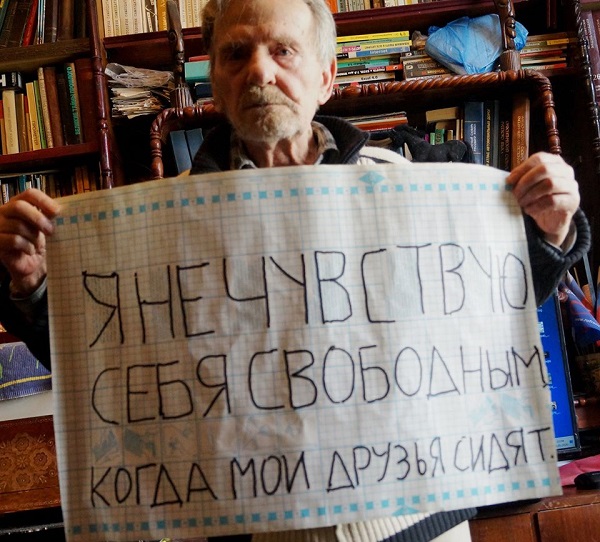 Я НЕ ЧУВСТВУЮ
СЕБЯ СВОБОДНЫМ,
КОГДА МОИ ДРУЗЬЯ СИДЯТ.